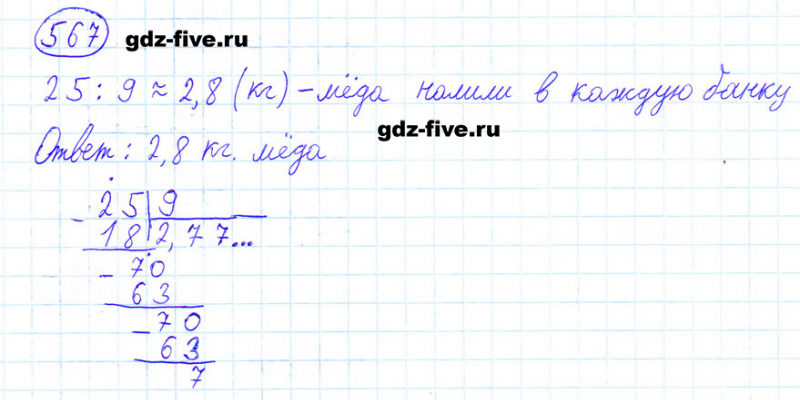 567 gdz-five.ru
25 : 9 ≈ 2,8 (кг) – мёда налили в каждую банку
gdz-five.ru
Ответ: 2,8 кг. мёда
- 25 | 9
18 | 2,77...
- 70
63
- 70
63
7